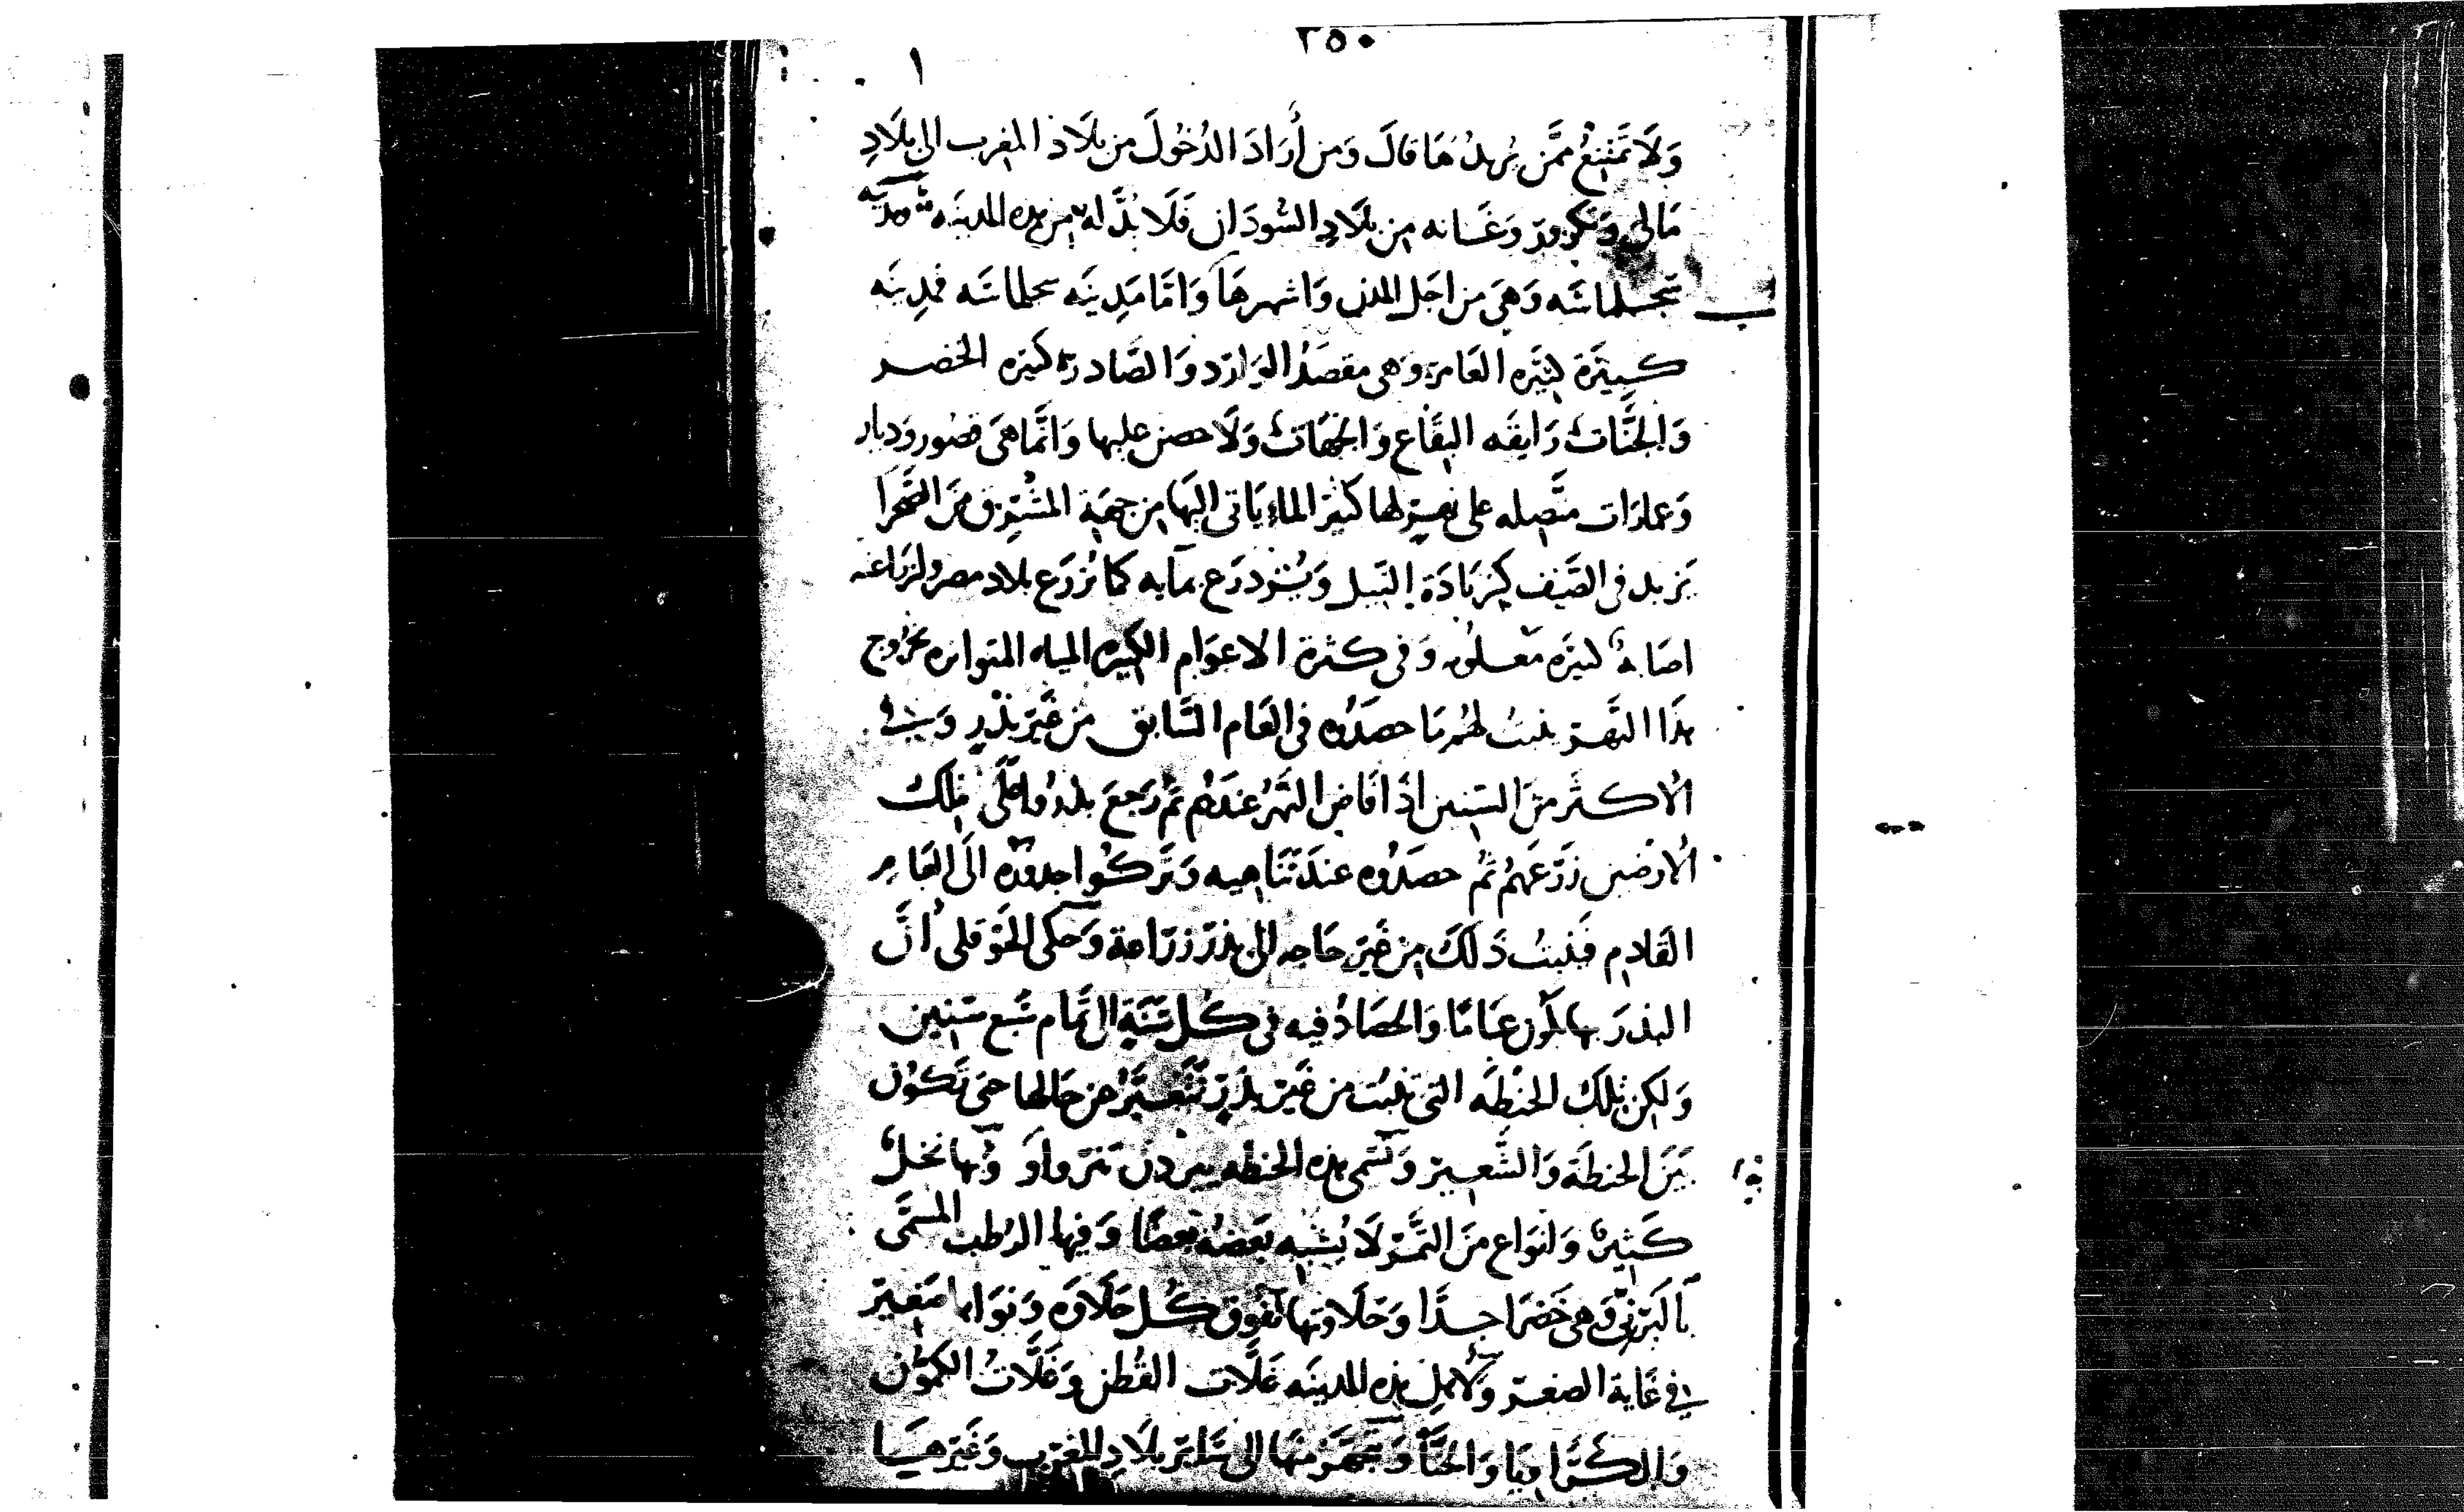 ٢٥٠
١
وَلَا تمتنع ممَّن يُريدُهَا قالَ وَمن أرَادَ الدُخُولَ من بلَاد المغرب الى بلَادِ
مَالى وتكرور وَغَانه من بلَادِ السُودَان فلَا بُدَّ له من هذه المدينَه مدينَه
سجلماسَه وَهىَ من اجَل المدن وَاشهرهَا وَامَّا مَدِينَه سجلماسَه فمدِينَه
كبيرَة كثيره العَامره وَهى مقصَدُ الوَارد وَالصَّادر كثيره الخضر
وَالجنَّات رَايقَه البقَاع وَالجهَات وَلَا حصن عليها وَانَّمَا هىَ قصُور وَديار
وَعمارَات متَّصله على نهر لها كثير الماء يَاتى اليهَا من جهَة المشرق منَ الصَّحرَا
يَزيد فى الصَّيف كزيَادَة النيل وَيُزدرَع بمآيه كما تُزرَع بلاد مصر ولزرَاعته
اصَابة كثيرَه معلومه وَفى كثرة الاعوَام الكثيره المياه المتواتره بخرُوج
هذَا النَّهر ينبتُ لهُم مَا حصَدُوه فى العَام السَّابق من غَير بَذرٍ وَفى
الاكثر منَ السّنين اذَا فَاضَ النَّهرُ عندَهم ثمَّ رَجعَ بذرُوا علَى تلك
الارض زَرعَهُم ثُمَّ حصَدُوه عندَ تنَاهيه وَتركُوا جدورَه الَى العَام
القادم فينبتُ ذَلكَ من غَير حَاجه الى بذر زرَاعة وَحكى الحَوقلى أنَّ
البذرَ بها يكُون عَامًا وَالحصَادُ فيه فى كُل سَنَةٍ الى تمَام سَبع سنين
وَلكن تلك الحنطَه التى تنبت من غَير بَذرٍ تتغَيَّرُ عن حَالها حتى تَكُون
بَينَ الحنطَة وَالشَّعير وَتسَمى هذه الحنطه يردن تيزواو وَبها نخل
كَثير وَانوَاع منَ التَّمر لَا يُشبه بَعضُهُ بَعضًا وَفيها الرُطب المسَمَّى
بالبَرنى وَهى خَضرَا جدًا وَحَلَاوتها تفُوق كُل حَلَاوَه وَنوَاها صَغير
فى غَاية الصغر ولاهل هذه المدينَه غَلَّات القُطن وَغَلَّاتُ الكمُّون
وَالكَرَاويَا وَالحنَّا وَيتجهَّز منهَا الى سَائر بلَادِ المغرب وَغَيرهَا